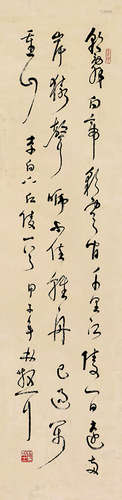 朝辞白帝彩云间千里江陵一日还两
岸猿声啼不住轻舟已过万
重山 李白下江陵一首 甲子年 林散耳